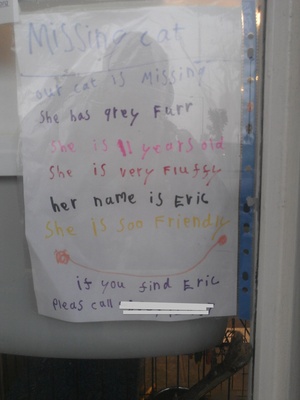 Missing cat
our cat is Missing
She has grey Furr
She is 11 years old
She is very Fluffy
her name is Eric
She is soo Friendly
if you find Eric
Pleas call